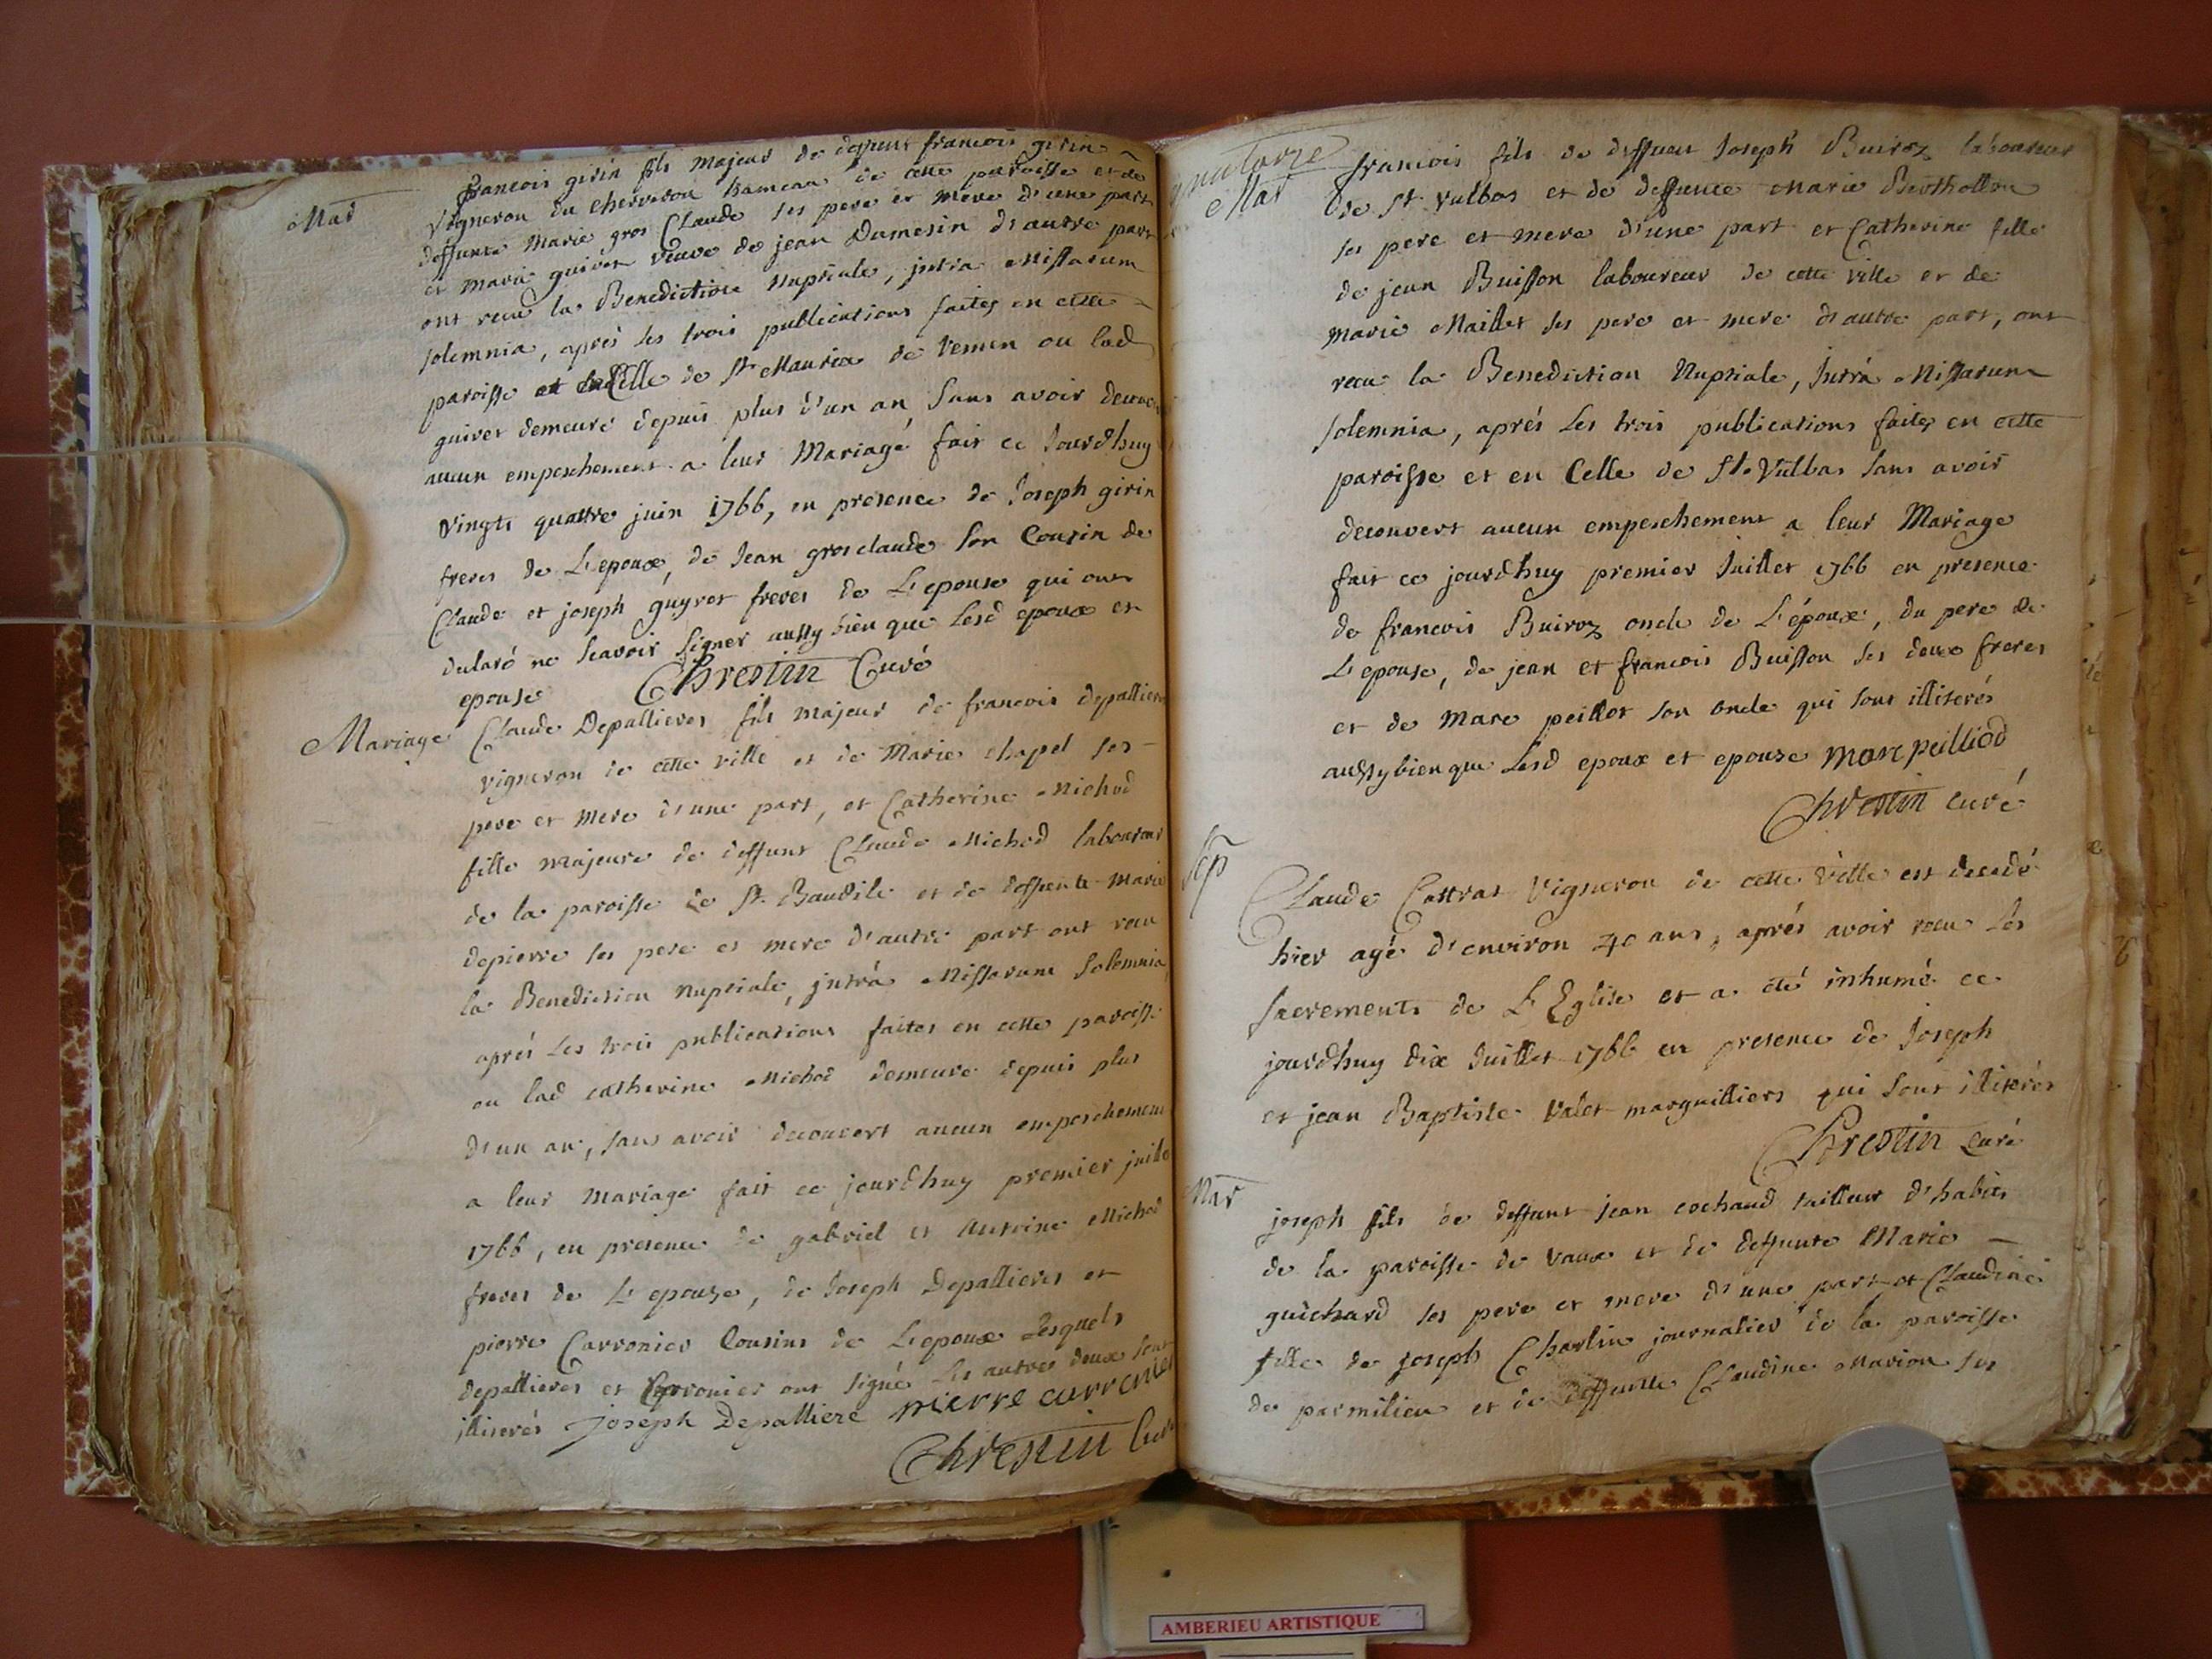 Mar
francois girin fils majeur de deffunt francois girin
vigneron du cherveron hameau de cette paroisse et de
deffunte Marie gros Claude ses pere et mere d'une part
et marie guiret veuve de jean Dumesin d'autre part
ont recu la Benediction Nuptiale, intra Missarum
solemnia, aprés les trois publications faites en cette
paroisse et en Celle de St Maurice de Remen ou lad
guiret demeure depuis plus d'un an, Sans avoir decouvert
aucun empeschement a leur Mariage fait ce Jourdhuy
vingt quatre juin 1766, en presence de Joseph girin
freres de L'epoux, de Jean grosclaude son Cousin de
Claude et joseph guyret freres de L'epouse qui ont
declaré ne scavoir signer aussy bien que lesd epoux et
epouse Chrestin Curé
Mariage
Claude Depallieres fils majeur de francois depallieres
vigneron de cette ville et de Marie chapel ses
pere et mere d'une part, et Catherine Michod
fille majeure de deffunt Claude Michod laboureur
de la paroisse de St Baudile et de deffunte marie
depierre ses pere et mere d'autre part ont recu
la Benediction nuptiale, jntrá Missarum Solemnia,
aprés Les trois publications faites en cette paroisse
ou lad catherine Michod demeure depuis plus
d'un an, sans avoir decouvert aucun empeschement
a leur mariage fait ce jourdhuy premier juille
1766, en presence de gabriel et Antoine Michod
freres de L'epouze, de Joseph Depallieres et
pierre Carronier Cousins de L'epoux Lesquels
depallieres et Carronier ont signé Les autres deux sont
illiterés Joseph Depalliere pierre carronier
Chrestin Curé
quatorze
Mar
francois fils de deffunt Joseph Buiroz laboureur
de St Vulbas et de deffunte Marie Berthollon
ses pere et mere d'une part et Catherine fille
de jean Buisson laboureur de cette ville et de
marie Maillet ses pere et mere d'autre part, ont
recu la Benediction Nuptiale, Jntrá Missarum
solemnia, aprés Les trois publications faites en cette
paroisse et en Celle de St Vulbas sans avoir
decouvert aucun empeschement a leur Mariage
fait ce jourdhuy premier Juillet 1766 en presence
de francois Buiroz oncle de L'époux, du pere de
L'epouse, de jean et francois Buisson ses deux freres
et de Marc peillot son oncle qui sont illiterés
aussybien que Lesd epoux et epouse marc peilliod
Chrestin curé
Sep
Claude Cottras vigneron de cette Ville est decedé
hier agé d'environ 40 ans, aprés avoir recu Les
sacrements de L'Eglise et a eté inhumé ce
jourdhuy dix Juillet 1766 en presence de Joseph
et jean Baptiste Valet marguilliers qui sont illiterés
Chrestin curé
Mar
joseph fils de deffunt jean cochaud tailleur d'habits
de la paroisse de vaux et de deffunte Marie
guichard ses pere et mere d'une part et Claudine
fille de joseph Charlin journalier de la paroisse
de parmilieu et de deffunte Claudine Marion ses
AMBERIEU ARTISTIQUE